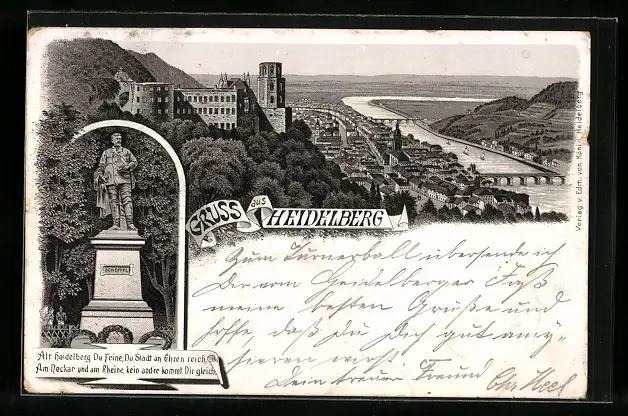 GRUSS aus HEIDELBERG
Verlag v. Edm. von König, Heidelberg.
SCHEFFEL
Alt Heidelberg Du Feine, Du Stadt an Ehren reich,
Am Neckar und am Rheine, kein and're kommt Dir gleich.
Zum Turnerball übersende ich
Dir vom Heidelberger Faß
meine besten Grüße und
hoffe, daß du Dich gut amü-
sieren wirst.
Dein treuer Freund